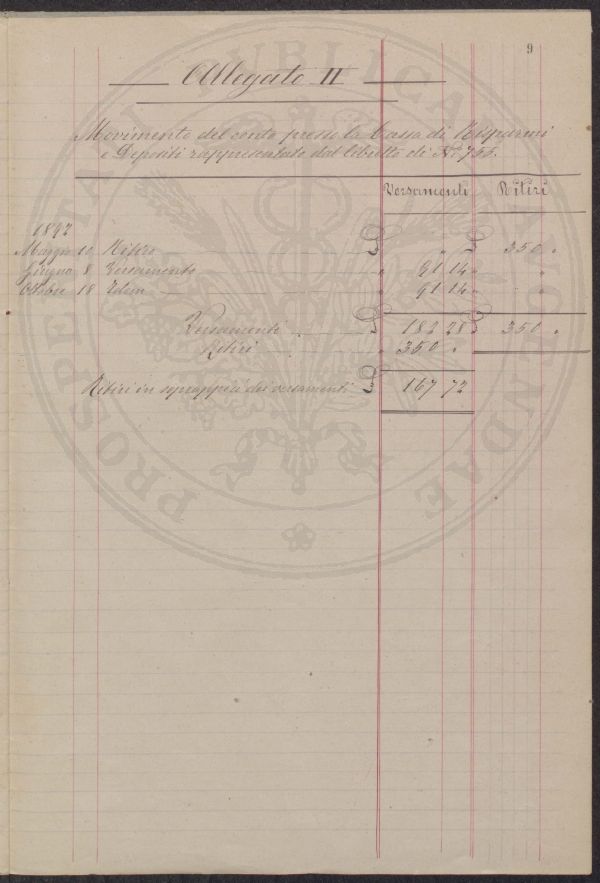 9
Allegato II
Movimento del conto presso la Cassa di Risparmi
e Depositi rappresentato dal libretto di N° 755.
Versamenti Ritiri
1897
Maggio 10 Ritiro £ " " £ 350 "
Giugno 8 Versamento " 91 14 " " "
Ottobre 18 Idem " 91 14 " " "
Versamenti £ 182 28 £ 350 "
Ritiri " 350 "
Ritiri in soprappiù dei versamenti £ 167 72
PROSPERITATI PUBLICAE AUGENDAE